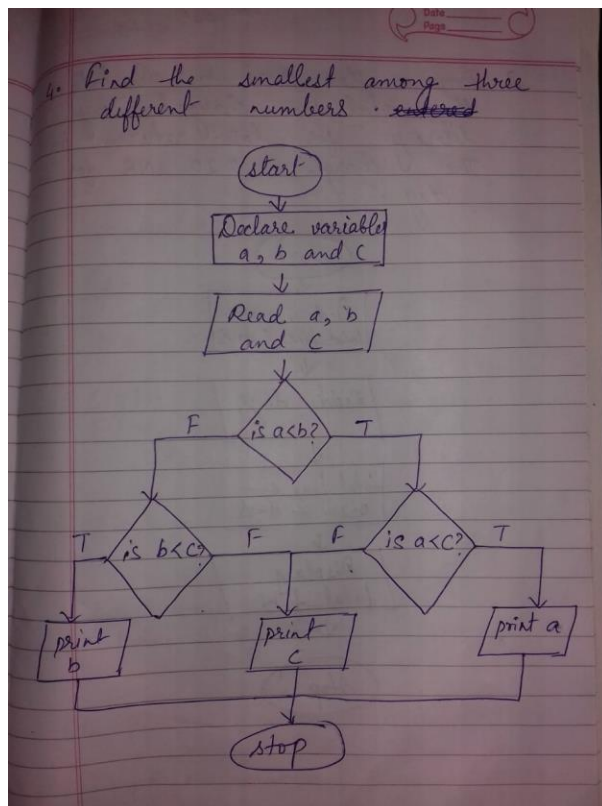 Date
Page
4. Find the smallest among three
different numbers. entered
start
Declare variables
a, b and c
Read a, b
and c
is a<b?
F
T
is b<c?
T
F
is a<c?
F
T
print
b
print
c
print a
stop